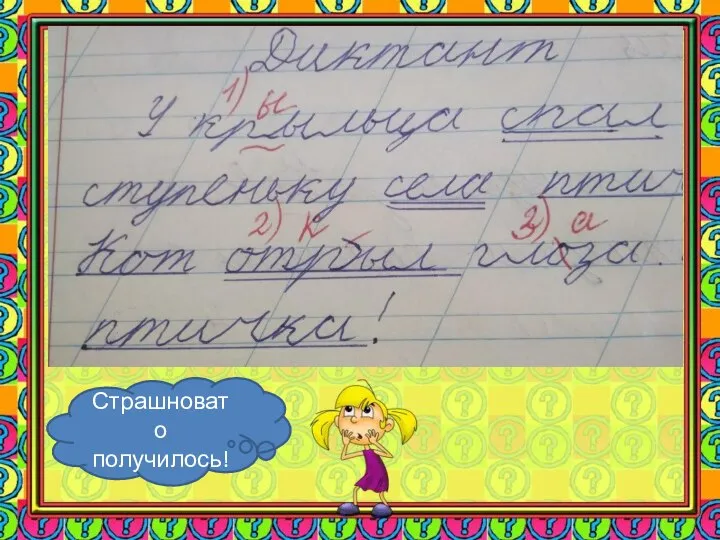 Диктант
1) ы
У крыльца спал
ступеньку села птич
2) к 3) а
Кот отрыл глоза.
птичка!
Страшноват
о
получилось!